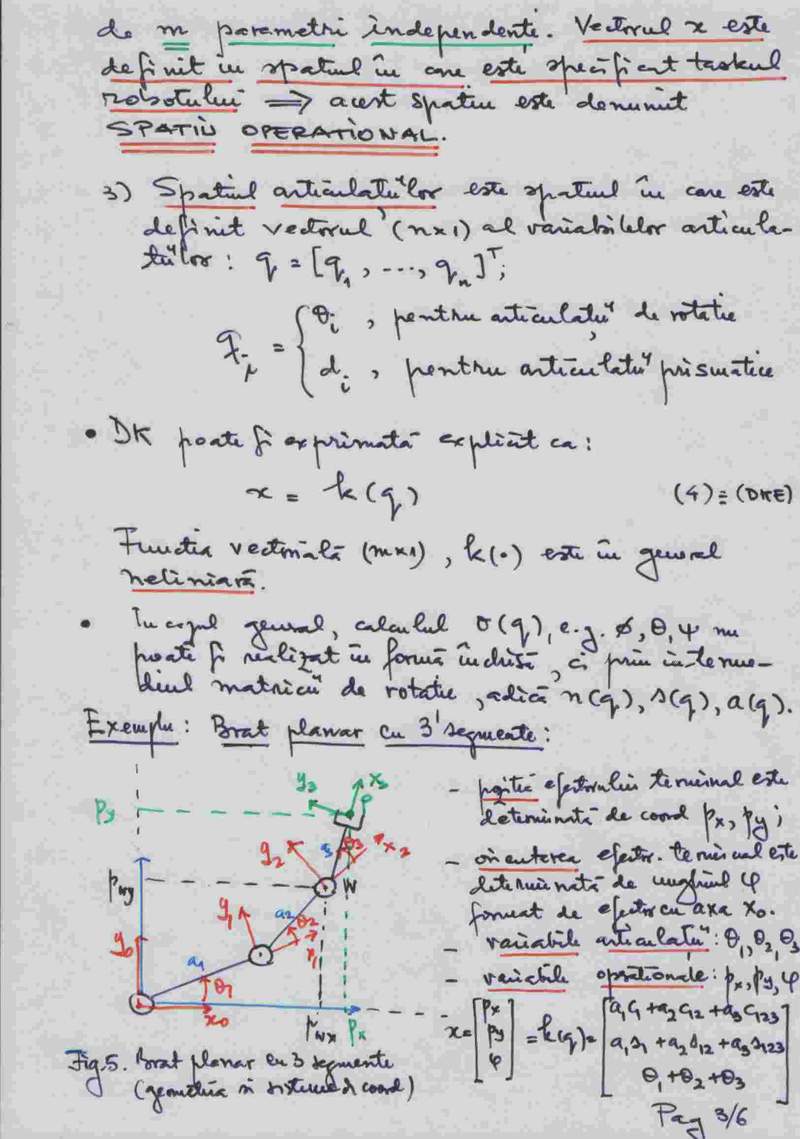 de m parametri independenti. Vectorul x este
definit in spatiul în care este specificat taskul
robotului => acest spatiu este denumit
SPATIU OPERATIONAL.
3) Spatiul articulatiilor este spatiul în care este
definit vectorul (n×1) al variabilelor articula-
tiilor: q = [q1, ..., qn]^T;
qi = { θi, pentru articulatii de rotatie
di, pentru articulatii prismatice
• DK poate fi exprimată explicit ca:
x = k(q) (4) ≡ (DKE)
Functia vectorială (m×1), k(•) este în general
neliniară.
• In cazul general, calculul σ(q), e.g. ø, θ, ψ nu
poate fi realizat în formă închisă, ci prin interme-
diul matricii de rotatie, adică n(q), s(q), a(q).
Exemplu: Brat planar cu 3 segmente:
y3 x3
P
py
θ3
a3 x2
y2
pwy
W
y1 a2 θ2
x1
y0 a1
θ1
x0 pwx px
- poziția efectorului terminal este
determinată de coord px, py;
- orientarea efector. terminal este
determinată de unghiul φ
format de efector cu axa x0.
- variabile articulatii: θ1, θ2, θ3
- variabile operationale: px, py, φ
x = [px
py
φ] = k(q) = [a1c1 + a2c12 + a3c123
a1s1 + a2s12 + a3s123
θ1 + θ2 + θ3]
Fig.5. Brat planar cu 3 segmente
(geometria si sisteme de coord)
Pag 3/6